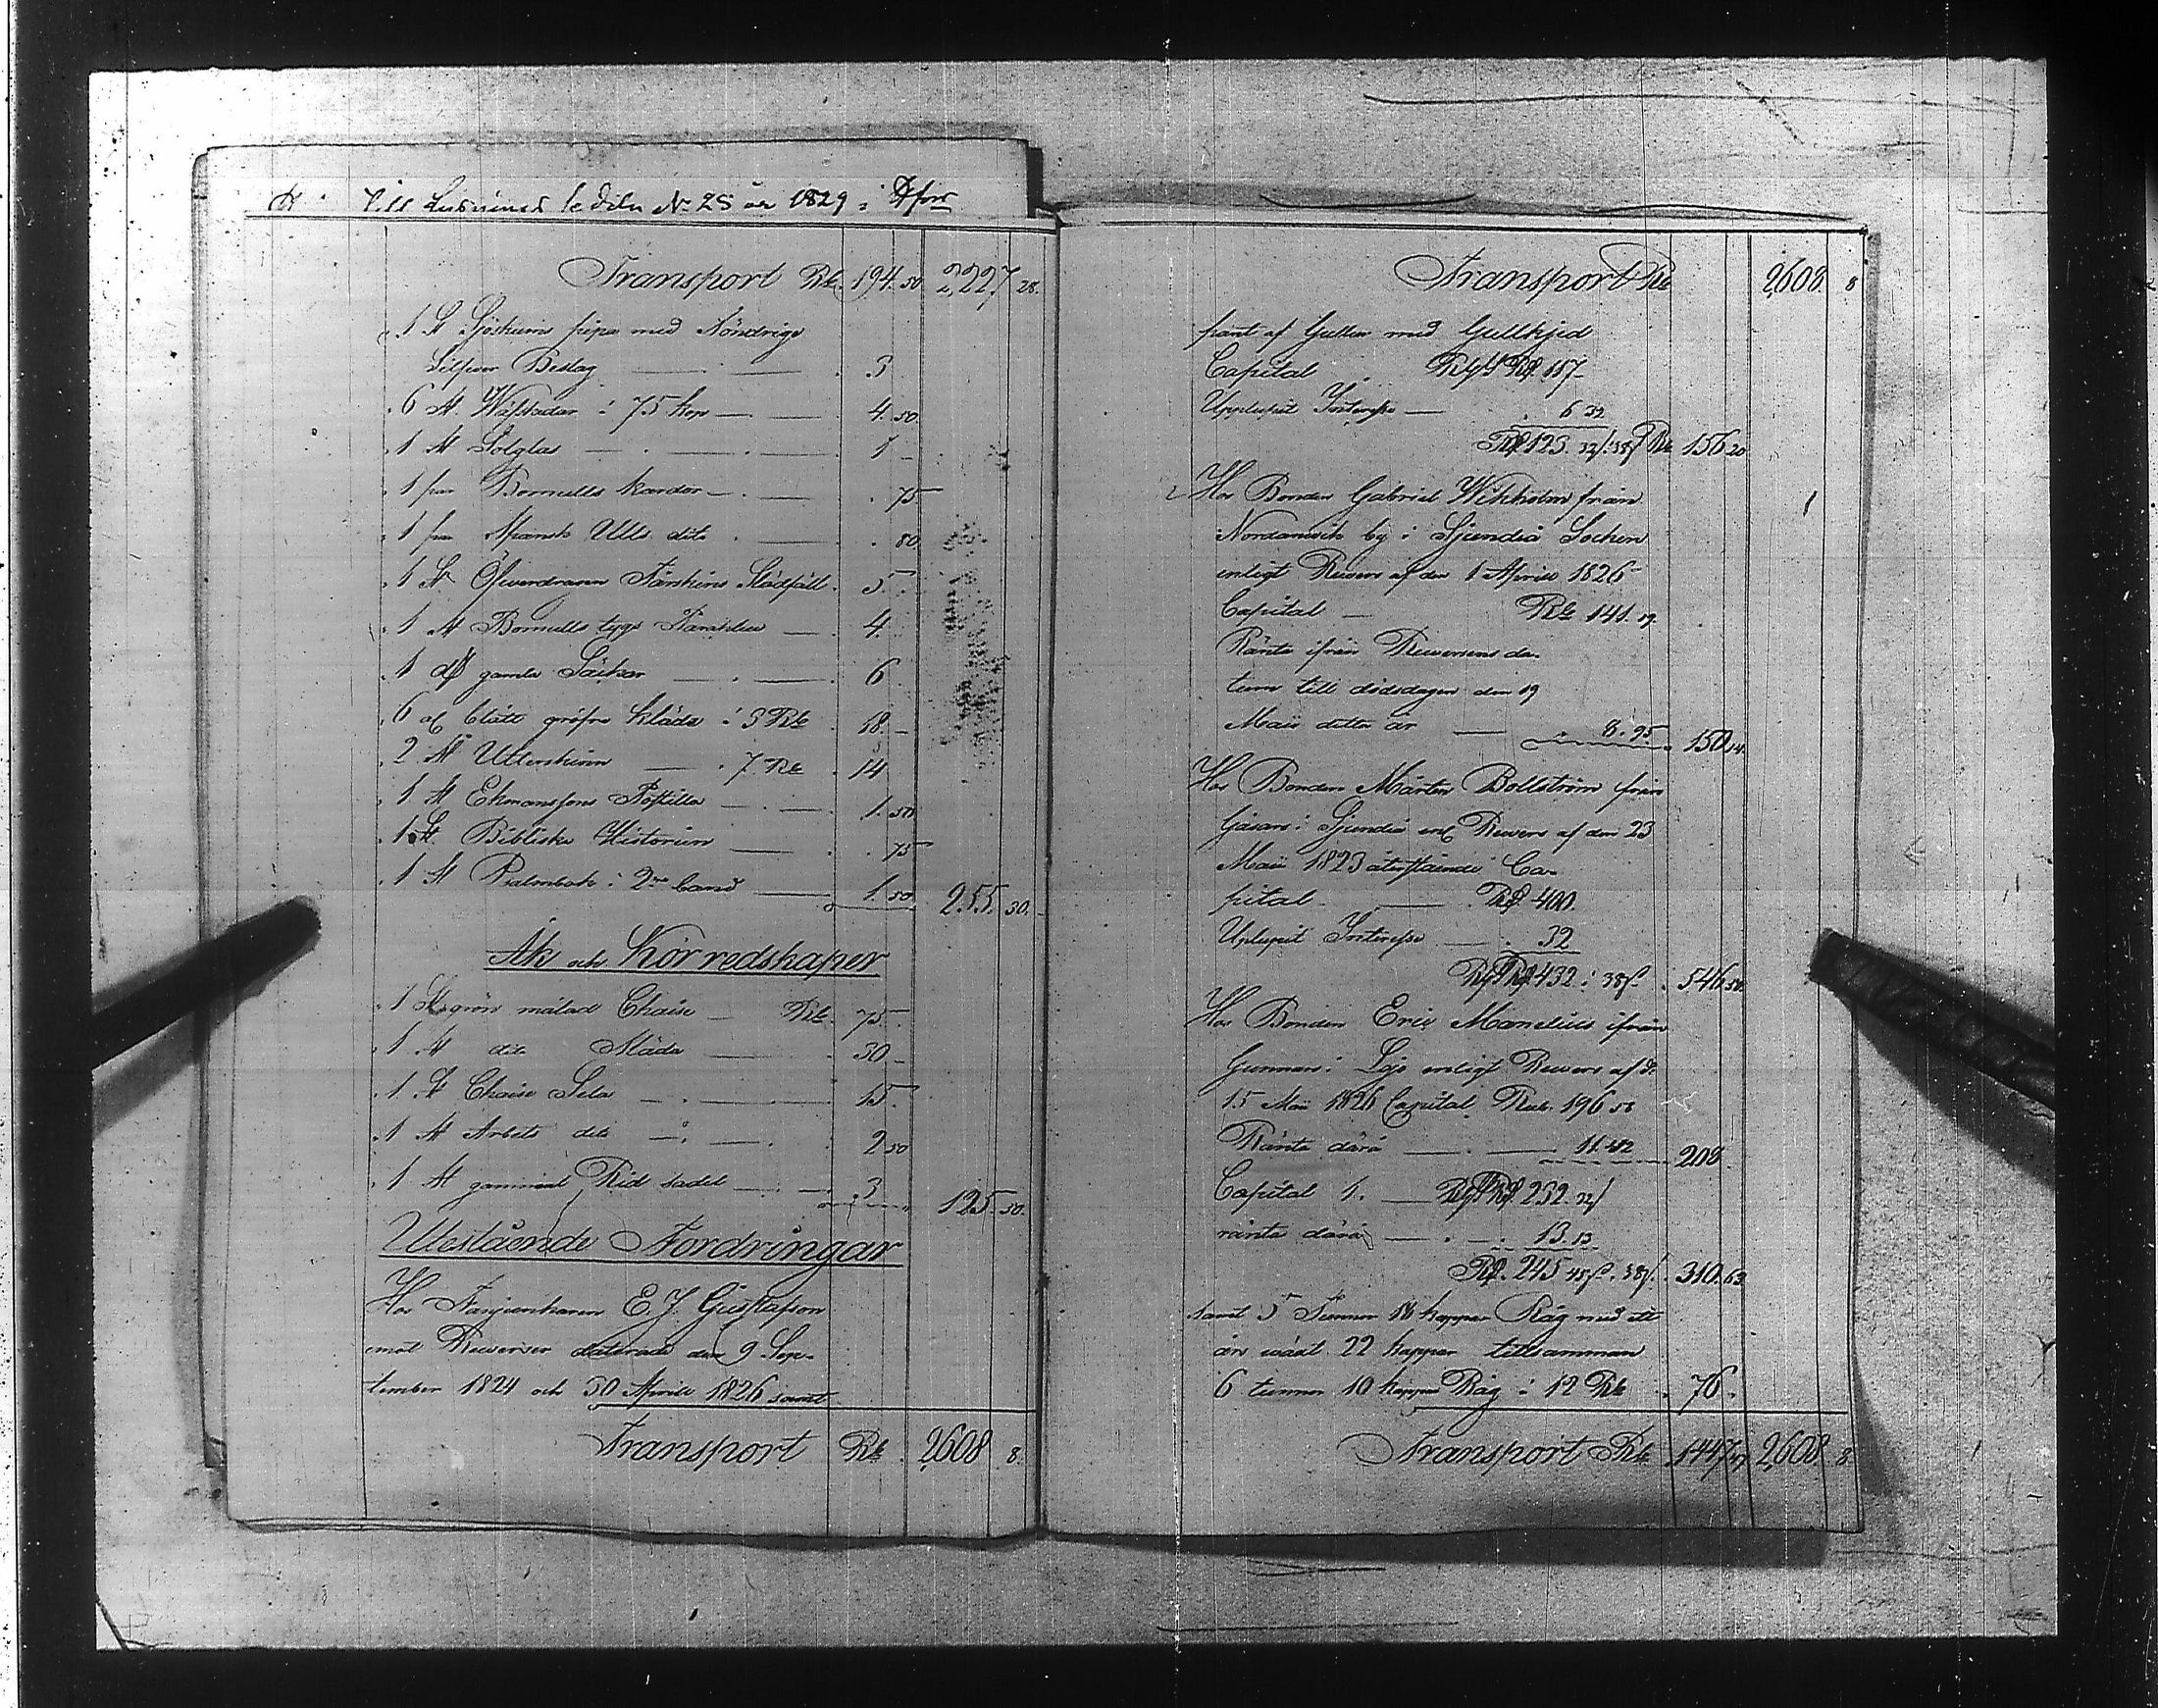 Till N 25 år 1829 i
Transport Rb. 194.50 2,227 28.
1 St Sjöskums pipa med
Silfver Beslag 3
6 St. Wäfskedar i 75 kop 4.50
1 St Solglas 1 -
1 par Bomulls kardor 75
1 par Spansk Ulls dito 80
1 St Öfwerdragen Fårskins Slädfäll 5
1 St Bomulls tygs 4.
1 gamla Säckar 6
6 al blått gröfre kläde i 3 Rb 18.-
2 St Utterskinn 7 Rb 14
1 St Ekmansons Postilla 1.50
1 St. Bibliska Historien 75
1 St Psalmbok i 2ne band 1.50 255.30.
Åk och Körredskaper
1 St grön målad Chaise Rb. 75
1 St dito Släda 30 -
1 St Chaise Sela 15.
1 St Arbets dito 2.50
1 St gammal Rid sadel 3 125.50.
Utestående Fordringar
Hos E. J. Gustafson
mot Reverser daterade den 9 Sep-
tember 1824 och 30 Aprill 1826 samt
Transport Rb. 2,608 8.
Transport Rb 2,608. 8
pant af med
Capital 117-
Upplupit Intresse 6 32
123. 32 Rb 156 20
Hos Bonden Gabriel Wikholm från
Nordanwik by i Sjundeå Socken
enligt Revers af den 1 Aprill 1826
Capital Rb 141. 19.
Ränta ifrån Reversens da-
tum till dödsdagen den 19
Maii detta år 8. 95 150.14.
Hos Bonden Mårten Bollström från
Gåsars i Sjundeå enl Revers af den 23
Maii 1823 återstående Ca-
pital 400.
Uplupit Intresse 32
432 546.50.
Hos Bonden Eric Manelius ifrån
Gunnars i Lojo enligt Revers af d.
15 Maii 1826 Capital Rub. 196 58
Ränta därå 11.42 208.
Capital 232 32
ränta därå 13. 13
245 45 310.63
samt 5 Tunnor 18 kappar Råg med ett
års wäxt 22 kappar tillsamman
6 tunnor 10 kappar Råg i 12 Rb 76.
Transport Rb. 1447 47 2,608. 8